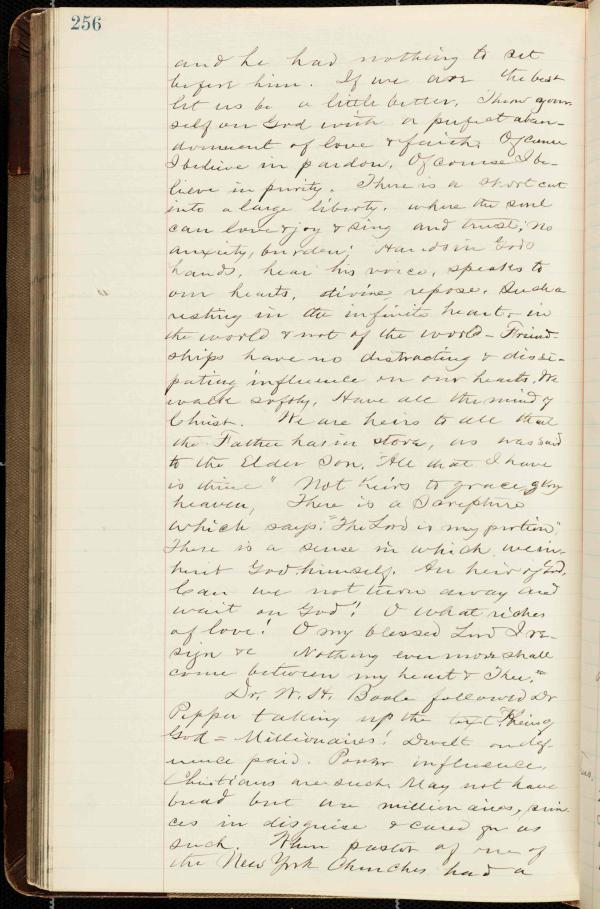 256
and he had nothing to set
before him. If we are the best
let us be a little better. Throw your-
self on God with a perfect aban-
donment of love & faith. Of course
I believe in pardon. Of course I be-
lieve in purity. There is a short cut
into a large liberty. where the soul
can love & joy & sing and trust, no
anxiety, burden; Hands in God's
hands, hear his voice, speaks to
our hearts, divine repose. Such a
resting in the infinite heart, in
the world & not of the world - Friend-
ships have no distracting & dissi-
pating influence on our hearts. We
walk softly. Have all the mind of
Christ. We are heirs to all that
the Father has in store, as was said
to the Elder Son, "All that I have
is thine" Not heirs to grace, glory
heaven, There is a Scripture
which says: "The Lord is my portion".
There is a sense in which we in-
herit God himself. An heir of God.
Can we not turn away and
wait on God! O what riches
of love! O my blessed Lord I re-
sign &c Nothing evermore shall
come between my heart & Thee."
Dr. W. H. Boole followed Dr
Pepper taking up the text "
God = Millionaires! Dwelt on def-
erence paid. Power influence.
Christians are such. May not have
bread but are millionaires, prin-
ces in disguise & cared for as
such. When pastor of one of
the New York Churches had a